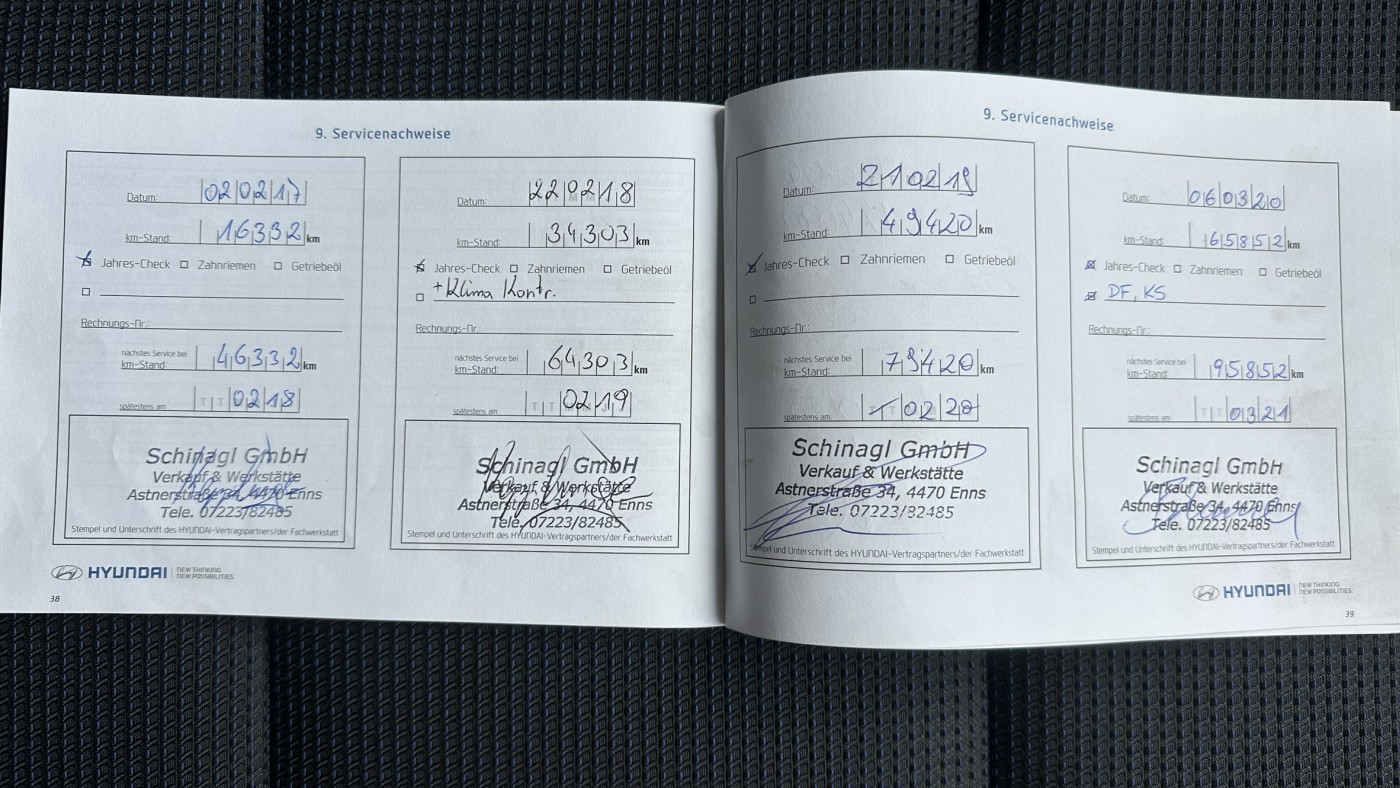 9. Servicenachweise
Datum: 020217
km-Stand: 16332 km
Jahres-Check Zahnriemen Getriebeöl
Rechnungs-Nr.:
nächstes Service bei
km-Stand: 46332 km
spätestens am: TT0218
Schinagl GmbH
Verkauf & Werkstätte
Astnerstraße 34, 4470 Enns
Tele. 07223/82485
Stempel und Unterschrift des HYUNDAI-Vertragspartners/der Fachwerkstatt
Datum: 220218
km-Stand: 34303 km
Jahres-Check Zahnriemen Getriebeöl
+ Klima Kontr.
Rechnungs-Nr.:
nächstes Service bei
km-Stand: 64303 km
spätestens am: TT0219
Schinagl GmbH
Verkauf & Werkstätte
Astnerstraße 34, 4470 Enns
Tele. 07223/82485
Stempel und Unterschrift des HYUNDAI-Vertragspartners/der Fachwerkstatt
HYUNDAI NEW THINKING.
NEW POSSIBILITIES.
38
9. Servicenachweise
Datum: 210219
km-Stand: 49420 km
Jahres-Check Zahnriemen Getriebeöl
Rechnungs-Nr.:
nächstes Service bei
km-Stand: 79420 km
spätestens am: TT0220
Schinagl GmbH
Verkauf & Werkstätte
Astnerstraße 34, 4470 Enns
Tele. 07223/82485
Stempel und Unterschrift des HYUNDAI-Vertragspartners/der Fachwerkstatt
Datum: 060320
km-Stand: 65852 km
Jahres-Check Zahnriemen Getriebeöl
DF, KS
Rechnungs-Nr.:
nächstes Service bei
km-Stand: 95852 km
spätestens am: TT0321
Schinagl GmbH
Verkauf & Werkstätte
Astnerstraße 34, 4470 Enns
Tele. 07223/82485
Stempel und Unterschrift des HYUNDAI-Vertragspartners/der Fachwerkstatt
HYUNDAI NEW THINKING.
NEW POSSIBILITIES.
39